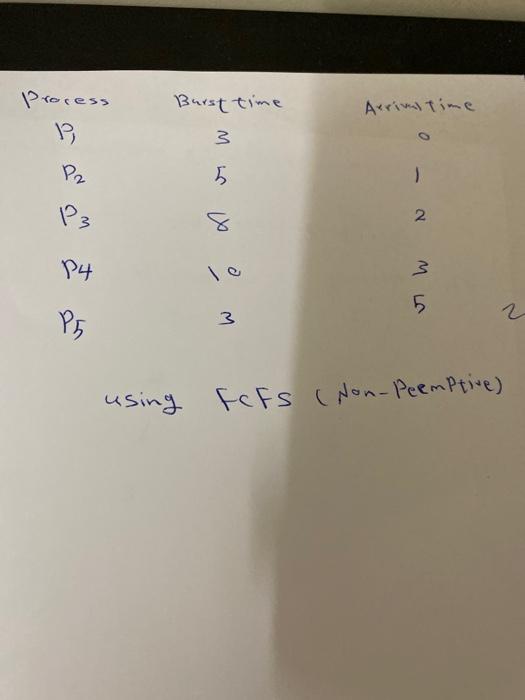 Process Burst time Arrival time
P1 3 0
P2 5 1
P3 8 2
P4 10 3
P5 3 5
2
using FCFS (Non-Peemptive)